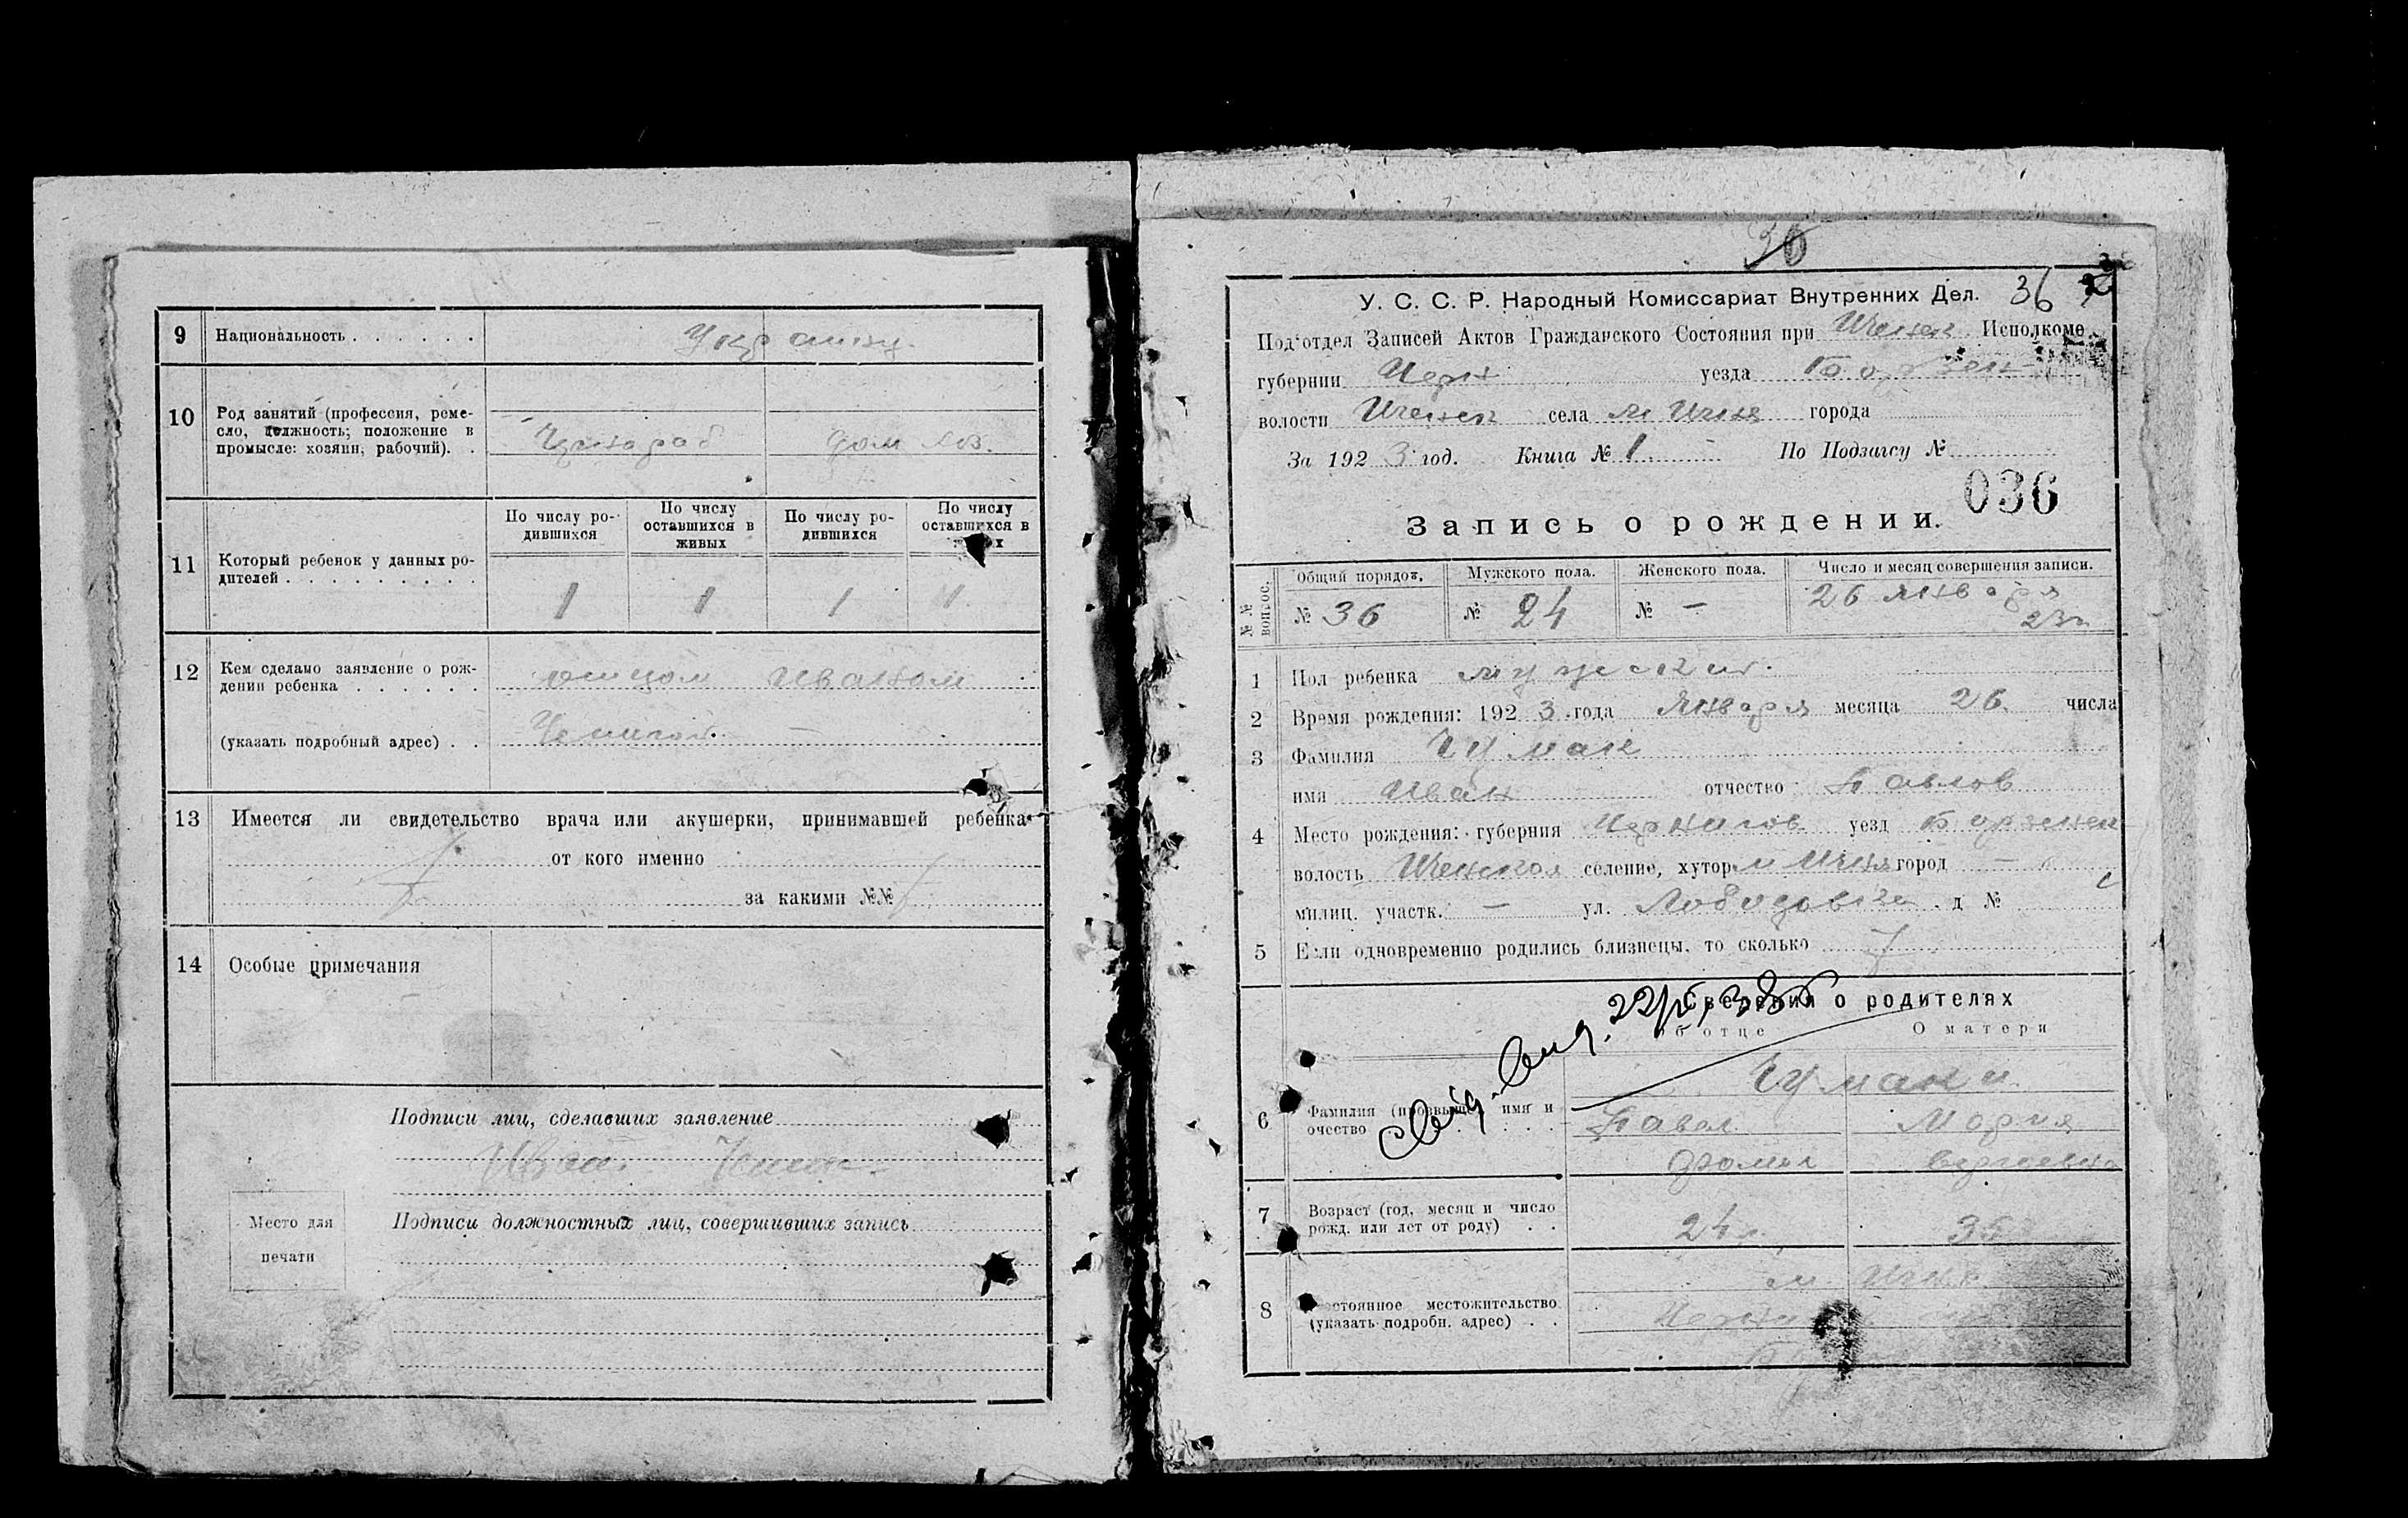 9 Национальность . . . . . . Украинц.
10 Род занятий (профессия, реме-
сло, должность; положение в
промысле: хозяин, рабочий). . Чернораб дом хоз.
11 Который ребенок у данных ро-
дителей . . . . . . . . .
По числу ро-
дившихся
По числу
оставшихся в
живых
По числу ро-
дившихся
По числу
оставшихся в
1 1 1 1
12 Кем сделано заявление о рож-
дении ребенка . . . . . . отцом Иваном
(указать подробный адрес) . .
13 Имеется ли свидетельство врача или акушерки, принимавшей ребенка
от кого именно
за какими №№
14 Особые примечания
Подписи лиц, сделавших заявление
Иван
Подписи должностных лиц, совершивших запись
Место для
печати
36
У. С. С. Р. Народный Комиссариат Внутренних Дел. 36
Под'отдел Записей Актов Гражданского Состояния при Ичен Исполкоме
губернии Черн уезда Борзен
волости Ичен села м Ичня города
За 1923 год. Книга № 1 По Подзагсу №
036
Запись о рождении.
№№ вопрос.
Общий порядок. Мужского пола. Женского пола. Число и месяц совершения записи.
№ 36 № 24 № — 26 января
23г
1 Пол ребенка мужской.
2 Время рождения: 1923 года Января месяца 26 числа
3 Фамилия Чумак
имя Иван отчество Павлов
4 Место рождения: губерния Чернигов уезд Борзнен
волость Иченская селение, хутор м Ичня город —
милиц. участк. — ул. д №
5 Если одновременно родились близнецы, то сколько
Сведения о родителях
Об отце О матери
6 Фамилия (прозвище) имя и
очество . . . .
Чумаки
Павел Мария
7 Возраст (год, месяц и число
рожд. или лет от роду) . . 24 г. 35
8 Постоянное местожительство
(указать подробн. адрес) . .
м. Ичня